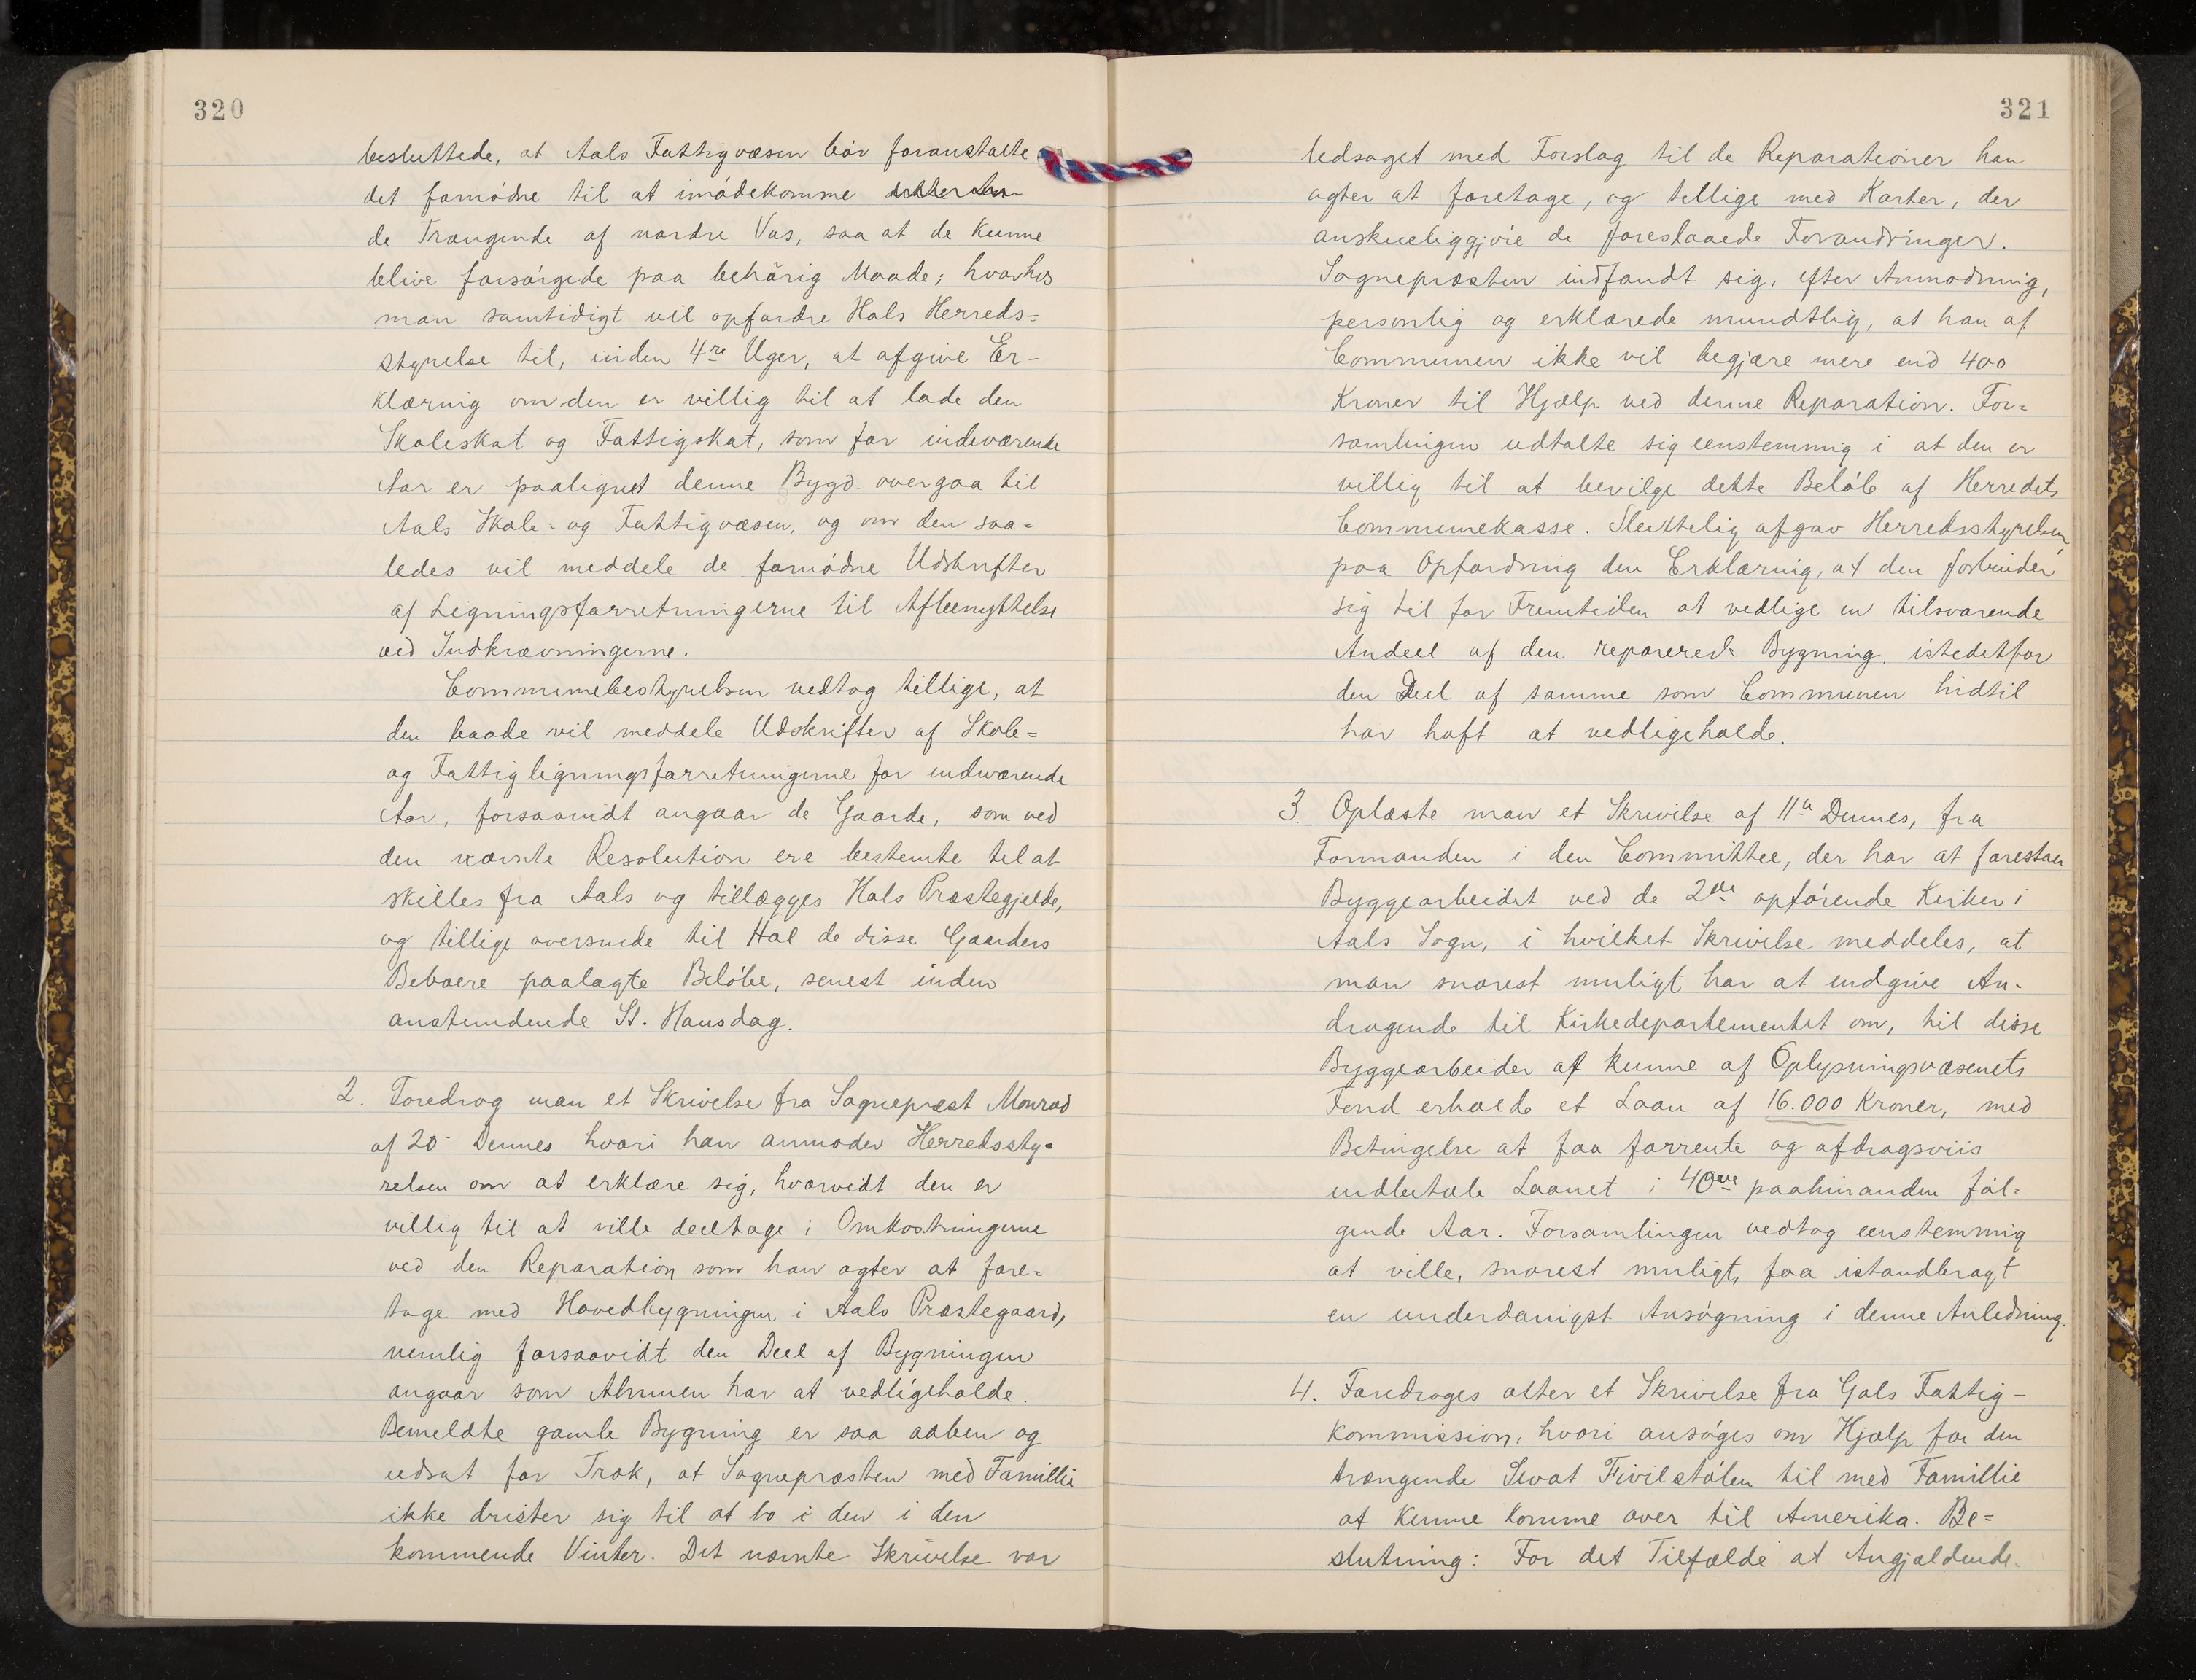 320
besluttede, at Aals Fattigvæsen bør foranstalte
det fornødne til at imødekomme
de Trængende af nordre Vas, saa at de kunne
blive forsørgede paa behörig Maade; hvorhos
man samtidigt vil opfordre Hols Herreds=
styrelse til, inden 4re Uger, at afgive Er-
klæring om den er villig til at lade den
Skoleskat og Fattigskat, som for indeværende
Aar er paalignet denne Bygd overgaa til
Aals Skole= og Fattigvæsen, og om den saa=
ledes vil meddele de fornødne Udskrifter
af Ligningsforretningerne til Afbenyttelse
ved Indkrævningerne.
Communebestyrelsen vedtog tillige, at
den baade vil meddele Udskrifter af Skole=
og Fattigligningsforretningerne for indeværende
Aar, forsaavidt angaar de Gaarde, som ved
den nævnte Resolution ere bestemte til at
skilles fra Aals og tillægges Hols Præstegjelde,
og tillige oversende til Hol de disse Gaarders
Beboere paalagte Beløbe, senest inden
anstundende St. Hansdag.
2. Foredrog man et Skrivelse fra Sognepræst Monrad
af 20- Dennes hvori han anmoder Herredssty=
relsen om at erklære sig, hvorvidt den er
villig til at ville deeltage i Omkostningerne
ved den Reparation som han agter at fore=
tage med Hovedbygningen i Aals Præstegaard,
nemlig forsaavidt den Deel af Bygningen
angaar som Almuen har at vedligeholde.
Bemeldte gamle Bygning er saa aaben og
udsat for Træk, at Sognepræsten med Famillie
ikke drister sig til at bo i den i den
kommende Vinter. Det nævnte Skrivelse var
321
ledsaget med Forslag til de Reparationer han
agter at foretage, og tillige med Karter, der
anskueliggjøre de foreslaaede Forandringer.
Sognepræsten indfandt sig, efter Anmodning,
personlig og erklærede mundtlig, at han af
Communen ikke vil begjære mere end 400
Kroner til Hjælp ved denne Reparation. For=
samlingen udtalte sig eenstemmig i at den er
villig til at bevilge dette Beløb af Herredets
Communekasse. Sluttelig afgav Herredsstyrelsen,
paa Opfordring den Erklæring, at den forbinder
sig til for Fremtiden at vedlige en tilsvarende
Andeel af den reparerede Bygning, istedetfor
den Deel af samme som Communen hidtil
har haft at vedligeholde.
3. Oplæste man et Skrivelse af 11te Dennes, fra
Formanden i den Committee, der har at forestaa
Byggearbeidet ved de 2de opførende Kirker i
Aals Sogn, i hvilket Skrivelse meddeles, at
man snarest muligt har at indgive An-
dragende til Kirkedepartementet om, til disse
Byggearbeider at kunne af Oplysningsvæsenets
Fond erholde et Laan af 16.000 Kroner, med
Betingelse at faa forrente og afdragsviis
indbetale Laanet i 40eve paahinanden føl=
gende Aar. Forsamlingen vedtog eenstemmig
at ville, snarest muligt, faa istandbragt
en underdanigst Ansøgning i denne Anledning.
4. Foredroges atter et Skrivelse fra Gols Fattig-
kommission, hvori ansøges om Hjælp for den
trængende Sivat Fivilstølen til med Famillie
at kunne komme over til Amerika. Be=
slutning: For det Tilfælde at Angjældende-